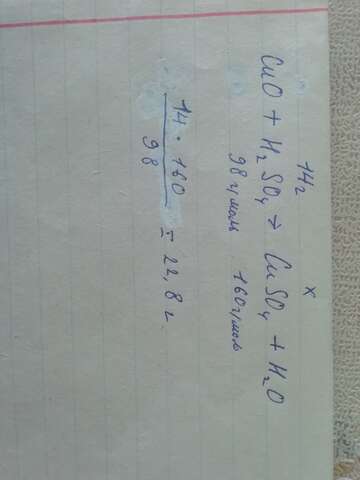 14г x
CuO + H₂SO₄ → CuSO₄ + H₂O
98 г/моль 160 г/моль
14 · 160
98
= 22,8 г